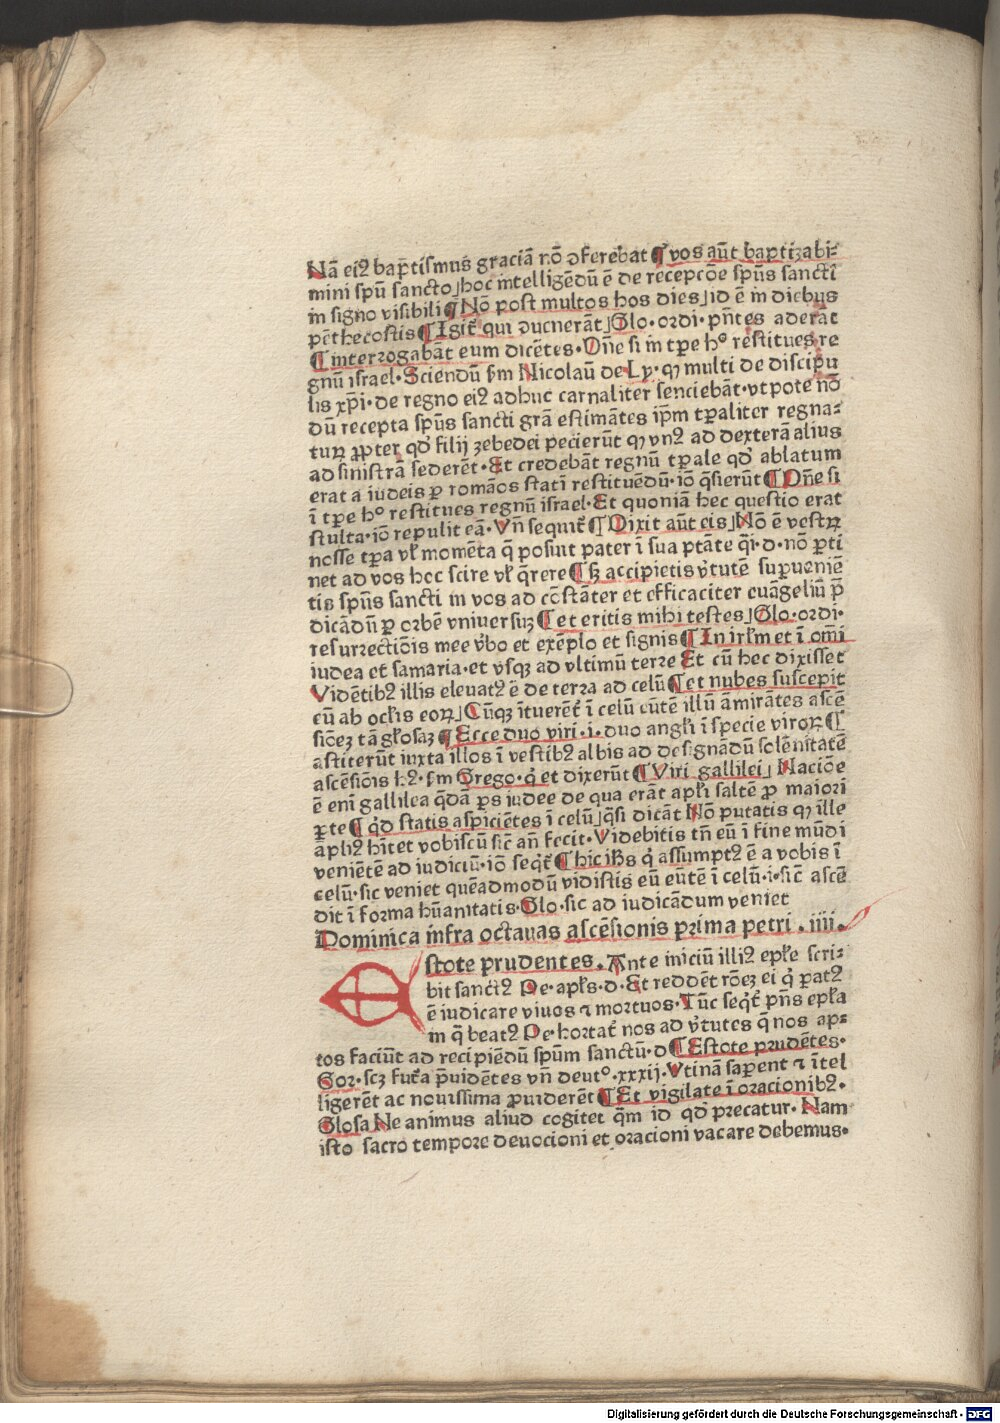 Nā eiꝰ bap̄tiſmus graciā nō ꝯferebat ¶ vos aūt baptizabi-
mini ſpū ſancto⌋ hoc intelligēdū ē de recepcōe ſpūs ſancti
in ſigno viſibili ¶ Nō poſt multos hos dies⌋ id ē in diebus
pēthecoſtis ¶ Igit᷑ qui ꝯuenerāt⌋ Glo· ordi· pn̄tes aderāt
¶ interrogabāt eum dicētes· Dn̄e ſi in tp̄e hͦ reſtitues re
gnū iſrael· Sciendū ẜm Nicolaū de Ly· qꝫ multi de diſcipu
lis xp̄i· de regno eiꝰ adhuc carnaliter ſenciebāt· vt pote nō
dū recepta ſpūs ſancti grā eſtimātes ip̄m tp̄aliter regna-
turꝝ ꝓpter qd̓ filij zebedei pecierūt qꝫ vnꝰ ad dexterā alius
ad ſiniſtrā ſederēt· Et credebāt regnū tp̄ale qd̓ ablatum
erat a iudeis ꝑ romāos ſtatī reſtituēdū· iō q̄ſierūt ¶ Dn̄e ſi
ī tp̄e hͦ reſtitues regnū iſrael· Et quoniā hec queſtio erat
ſtulta· iō repulit eā· Vn̄ ſequit᷑ ¶ Dixit aūt eis⌋ Nō ē veſtrꝝ
noſſe tp̄ra vl̓ momēta q̄ poſuit pater ī ſua ptāte q̄i· d· nō ꝑti
net ad vos hoc ſcire vl̓ q̄rere ¶ ſꝫ accipietis v̓tutē ſuꝑueniē
tis ſpūs ſancti in vos ad cōſtāter et efficaciter euāgeliū p̄
dicādū ꝑ orbē vniuerſuꝫ ¶ et eritis mihi teſtes⌋ Glo· ordi·
reſurrectiōis mee v̓bo et exēplo et ſignis ¶ In irl̓m et ī om̄i
iudea et ſamaria· et vſqꝫ ad vltimū terre Et cū hec dixiſſet
Vidētibꝰ illis eleuatꝰ ē de terra ad celū ¶ et nubes ſuſcepit
eū ab ocl̓is eoꝝ⌋ Cūqꝫ ītuerēt᷑ ī celū eūtē illū āmirātes aſcē
ſiōeꝫ tā gl̓oſaꝫ ¶ Ecce duo viri· i· duo angl̓i ī ſpecie viroꝝ ¶
aſtiterūt iuxta illos ī veſtibꝰ albis ad deſignādū ſolēnitatē
aſcēſiōis hꝰ· ẜm Grego· q̓ et dixerūt ¶ Viri gallilei⌋ Naciōe
ē enī gallilea q̄dā ꝑs iudee de qua erāt apl̓i ſaltē ꝓ maiori
ꝑte ¶ qd̓ ſtatis aſpiciētes ī celū⌋ q̄ſi dicāt Nō putatis qꝫ ille
āpliꝰ hīt et vobiſcū ſic̄ an̄ fecit· Videbitis tn̄ eū ī fine mūdi
veniētē ad iudiciū· iō ſeq̓t᷑ ¶ hic ih̓s q̓ aſſumptꝰ ē a vobis ī
celū· ſic veniet quēadmodū vidiſtis eū eūtē ī celū· i· ſic̄ aſcē
dit ī forma hūanitatis· Glo· ſic ad iudicādum veniet
Dominica infra octauas aſcēſionis prima petri · iiii·
Eſtote prudentes· Ante iniciū illiꝰ epl̓e ſcri-
bit ſanctꝰ Pe· apl̓s· d· Et reddēt rōeꝫ ei q̓ ꝑatꝰ
ē iudicare viuos ⁊ mortuos· Tūc ſeq̓t᷑ p̄ns epl̓a
in q̄ beatꝰ Pe· hortat᷑ nos ad v̓tutes q̄ nos ap-
tos faciūt ad recipiēdū ſpūm ſanctū· d ¶ Eſtote prudētes·
Gor· ſcꝫ fut᷑a p̄uidētes vn̄ deutͦ· xxxij· Vtinā ſaꝑent ⁊ ītel
ligerēt ac nouiſſima ꝓuiderēt ¶ Et vigilate ī oracionibꝰ·
Gloſa Ne animus aliud cogitet q̄m id qd̓ precatur· Nam
iſto ſacro tempore deuocioni et oracioni vacare debemus·
Digitalisierung gefördert durch die Deutsche Forschungsgemeinschaft - DFG